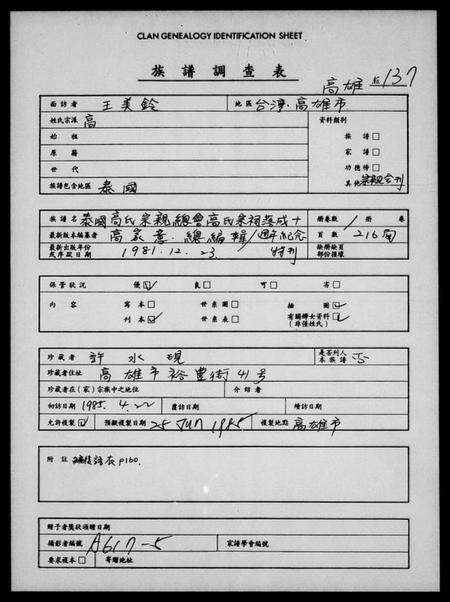 CLAN GENEALOGY IDENTIFICATION SHEET
族譜調查表
高雄 137
面訪者 王美鈴 地區 台灣.高雄市
姓氏宗派 高 資料類別
始祖 族譜□
原籍 家譜□
世代 功德榜□
族譜包含地區 泰國 其他 宗親會刊
族譜名 泰國高氏宗親總會高氏宗祠落成十 冊卷數 1 冊 卷
最新版本編纂者 高家意.總編輯/週年紀念 頁數 216面
最新出版年份或序跋日期 1981.12.23 特刊 缺冊缺頁部份損壞
保管狀況 優☑ 良□ 可□ 劣□
內容 寫本□ 世系圖□ 插圖☑
刊本☑ 世系表□ 有關婦女資料(非僅姓氏)
珍藏者 許水現 是否列入本族譜 否
珍藏者住址 高雄市裕豐街41號
珍藏者在(家)宗族中之地位 介紹者
初訪日期 1985.4.22 覆訪日期 續訪日期
允許複製☑ 預擬複製日期 25 Jun 1985 複製地點 高雄市
附註 在p160.
贈予者獎狀頒贈日期
攝影者編號 A617-5 家譜學會編號
要求複本□ 寄贈地址